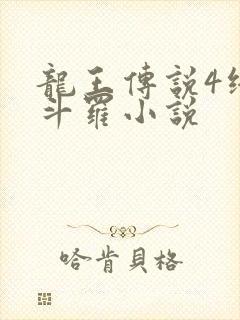 龍王傳說4
斗羅小說
哈肯貝格